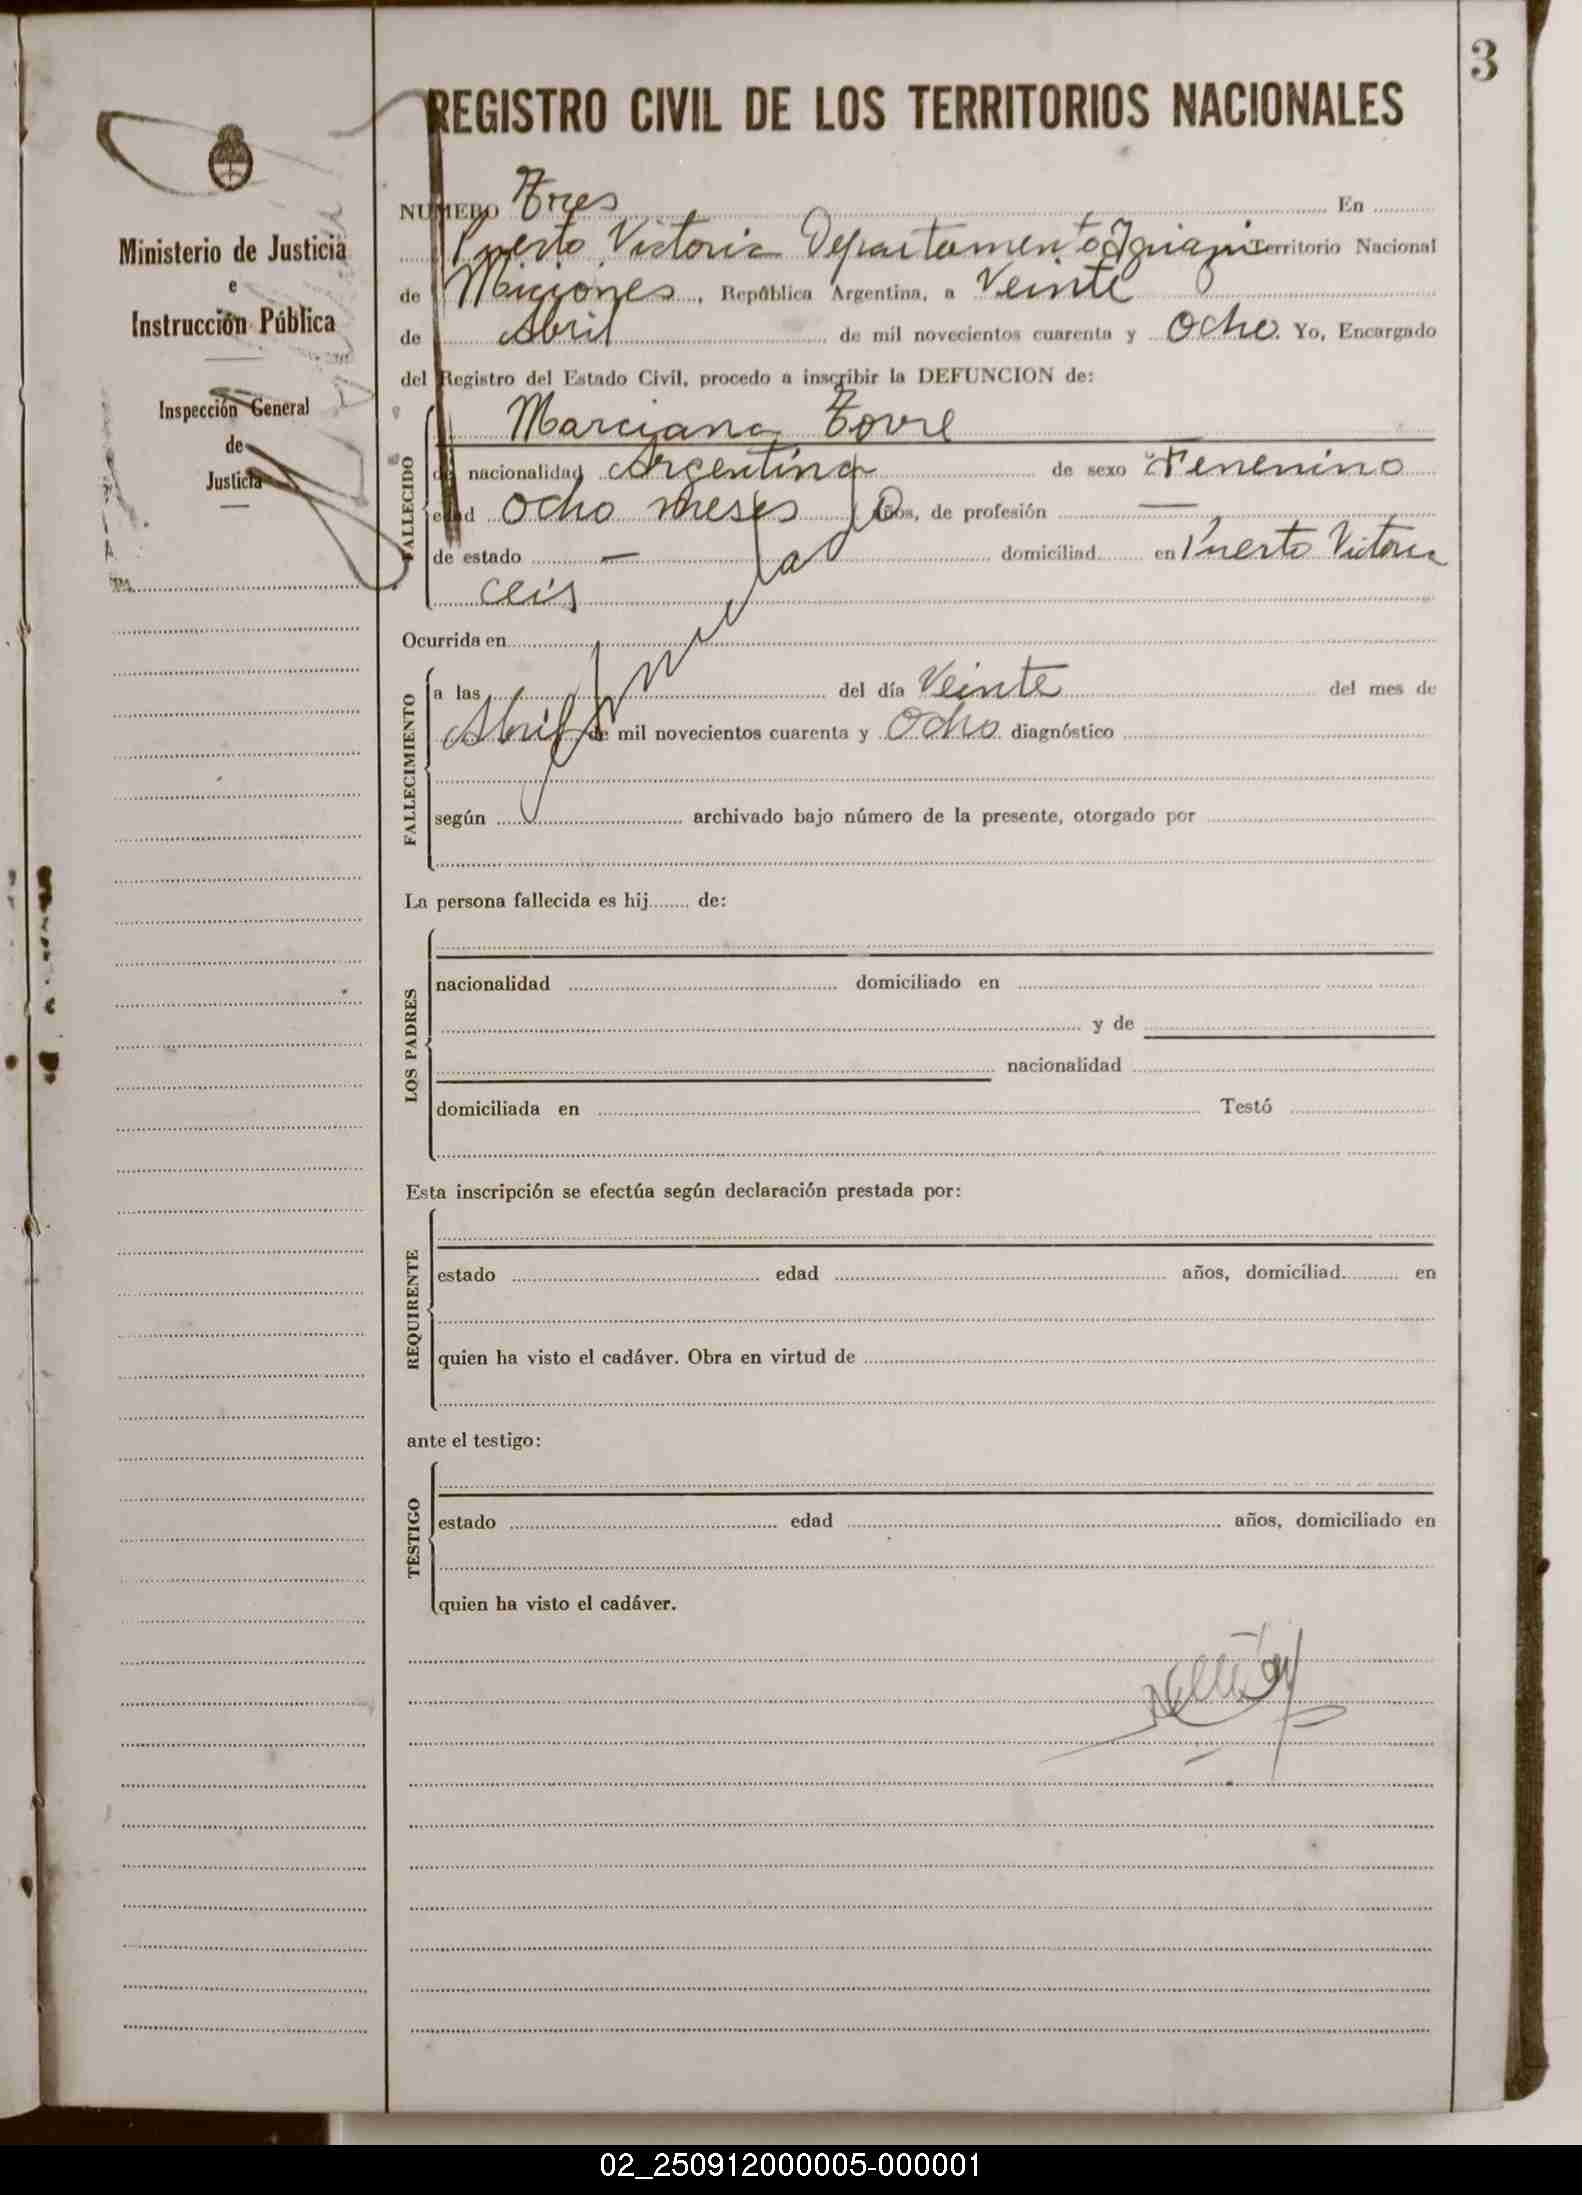 3
REGISTRO CIVIL DE LOS TERRITORIOS NACIONALES
Ministerio de Justicia
e
Instrucción Pública
Inspección General
de
Justicia
NUMERO Tres En
Puerto Victoria Departamento Iguazu Territorio Nacional
de Miciones, República Argentina, a Veinte
de Abril de mil novecientos cuarenta y Ocho. Yo, Encargado
del Registro del Estado Civil, procedo a inscribir la DEFUNCION de:
Marciana Torre
FALLECIDO
de nacionalidad Argentina de sexo Fenenino
edad Ocho meses años, de profesión —
de estado — domiciliad en Puerto Victoria
ceis
Anulado
Ocurrida en
FALLECIMIENTO
a las del día Veinte del mes de
Abril de mil novecientos cuarenta y Ocho diagnóstico
según archivado bajo número de la presente, otorgado por
La persona fallecida es hij de:
LOS PADRES
nacionalidad domiciliado en
y de
nacionalidad
domiciliada en Testó
Esta inscripción se efectúa según declaración prestada por:
REQUIRENTE
estado edad años, domiciliad en
quien ha visto el cadáver. Obra en virtud de
ante el testigo:
TESTIGO
estado edad años, domiciliado en
quien ha visto el cadáver.
02_250912000005-000001